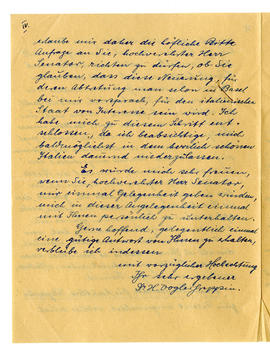 IV.
erlaube mir daher die höfliche Bitte
Anfrage an Sie, hochverehrter Herr
Senator, richten zu dürfen, ob Sie
glauben, dass diese Neuerung, für
deren Abtretung man schon in Basel
bei mir vorsprach, für den italienischen
Staat von Interesse sein wird. Ich
habe mich zu diesem Schritt ent-
schlossen, da ich beabsichtige, mich
baldmöglichst in dem herrlich schönen
Italien dauernd niederzulassen.
Es würde mich sehr freuen,
wenn Sie, hochverehrter Herr Senator,
mir einmal Gelegenheit geben würden,
mich in dieser Angelegenheit einmal
mit Ihnen persönlich zu unterhalten.
Gerne hoffend, gelegentlich einmal
eine gütige Antwort von Ihnen zu erhalten,
verbleibe ich indessen
mit vorzüglicher Hochachtung
Ihr sehr ergebener
Dr. H. Vogler-Greppin.